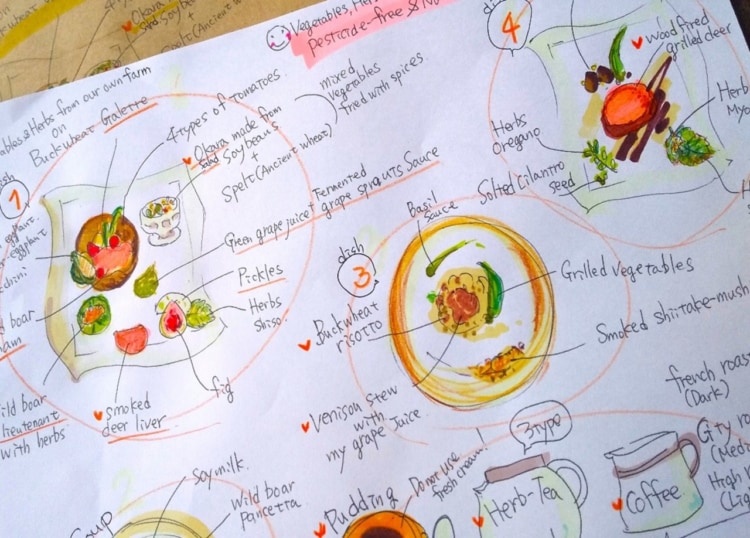 Vegetables, Her
Pesticide-free & No
ables & Herbs from our own farm
on
Buckwheat Galette
4 types of tomatoes
mixed
vegetables
fried with spices.
Okara made from
Soybeans
+
Spelt (Ancient wheat)
dish
1
Green grape juice + Fermented
grape sprouts Sauce
Pickles
Herbs
Shiso.
fig
smoked
deer liver
ild boar
lieutenant
with herbs
d boar
am
dish
4
wood fired
grilled deer
Herb
Myo
Herbs
Oregano
Salted Cilantro
seed
dish
3
Basil
Sauce
Buckwheat
risotto
Grilled vegetables
Smoked shiitake-mush
Venison stew
with
my grape Juice
soy milk.
Wild boar
Pancetta
Soup
2
Pudding
Do not use
fresh cream.
3 type
Herb-Tea
Coffee
french roas
(Dark)
City ro
(Medi
High
(Lig